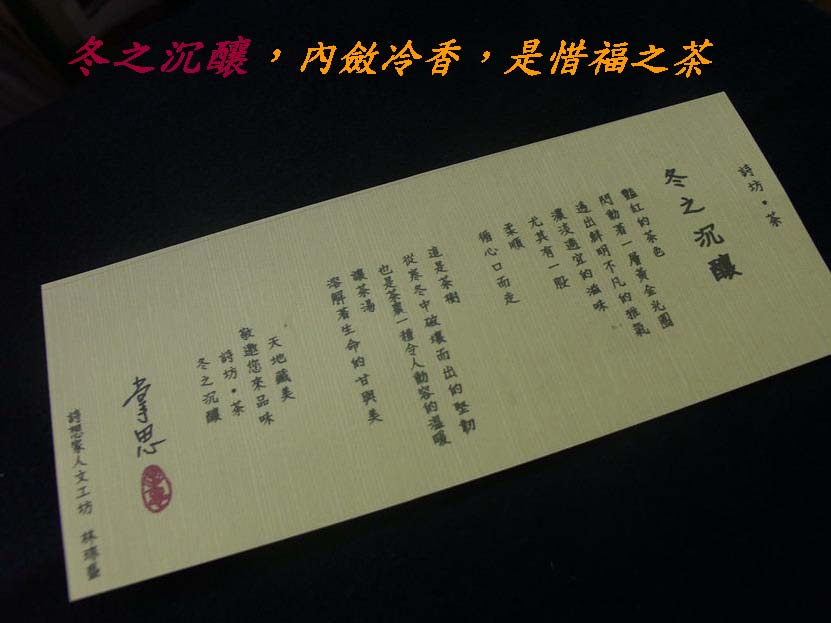 冬之沉釀，內斂冷香，是惜福之茶
詩坊•茶
冬之沉釀
豔紅的茶色
閃動著一層黃金光圈
透出鮮明不凡的雅氣
濃淡適宜的滋味
尤其有一股
柔順
循心口而走
這是茶樹
從寒冬中破壞而出的堅韌
也是茶農一種令人動容的溫暖
讓茶湯
溶解著生命的甘與美
天地藏美
敬邀您來品味
詩坊•茶
冬之沉釀
掌思
詩想家人文工坊 林